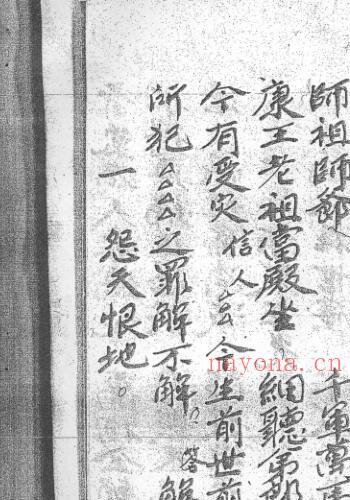 師祖師爺 千軍萬
康王老祖當殿坐 細聽弟
今有受災信人厶厶今生前世前
所犯厶厶厶之罪解不解。答解
一 怨天恨地。
nayona.cn